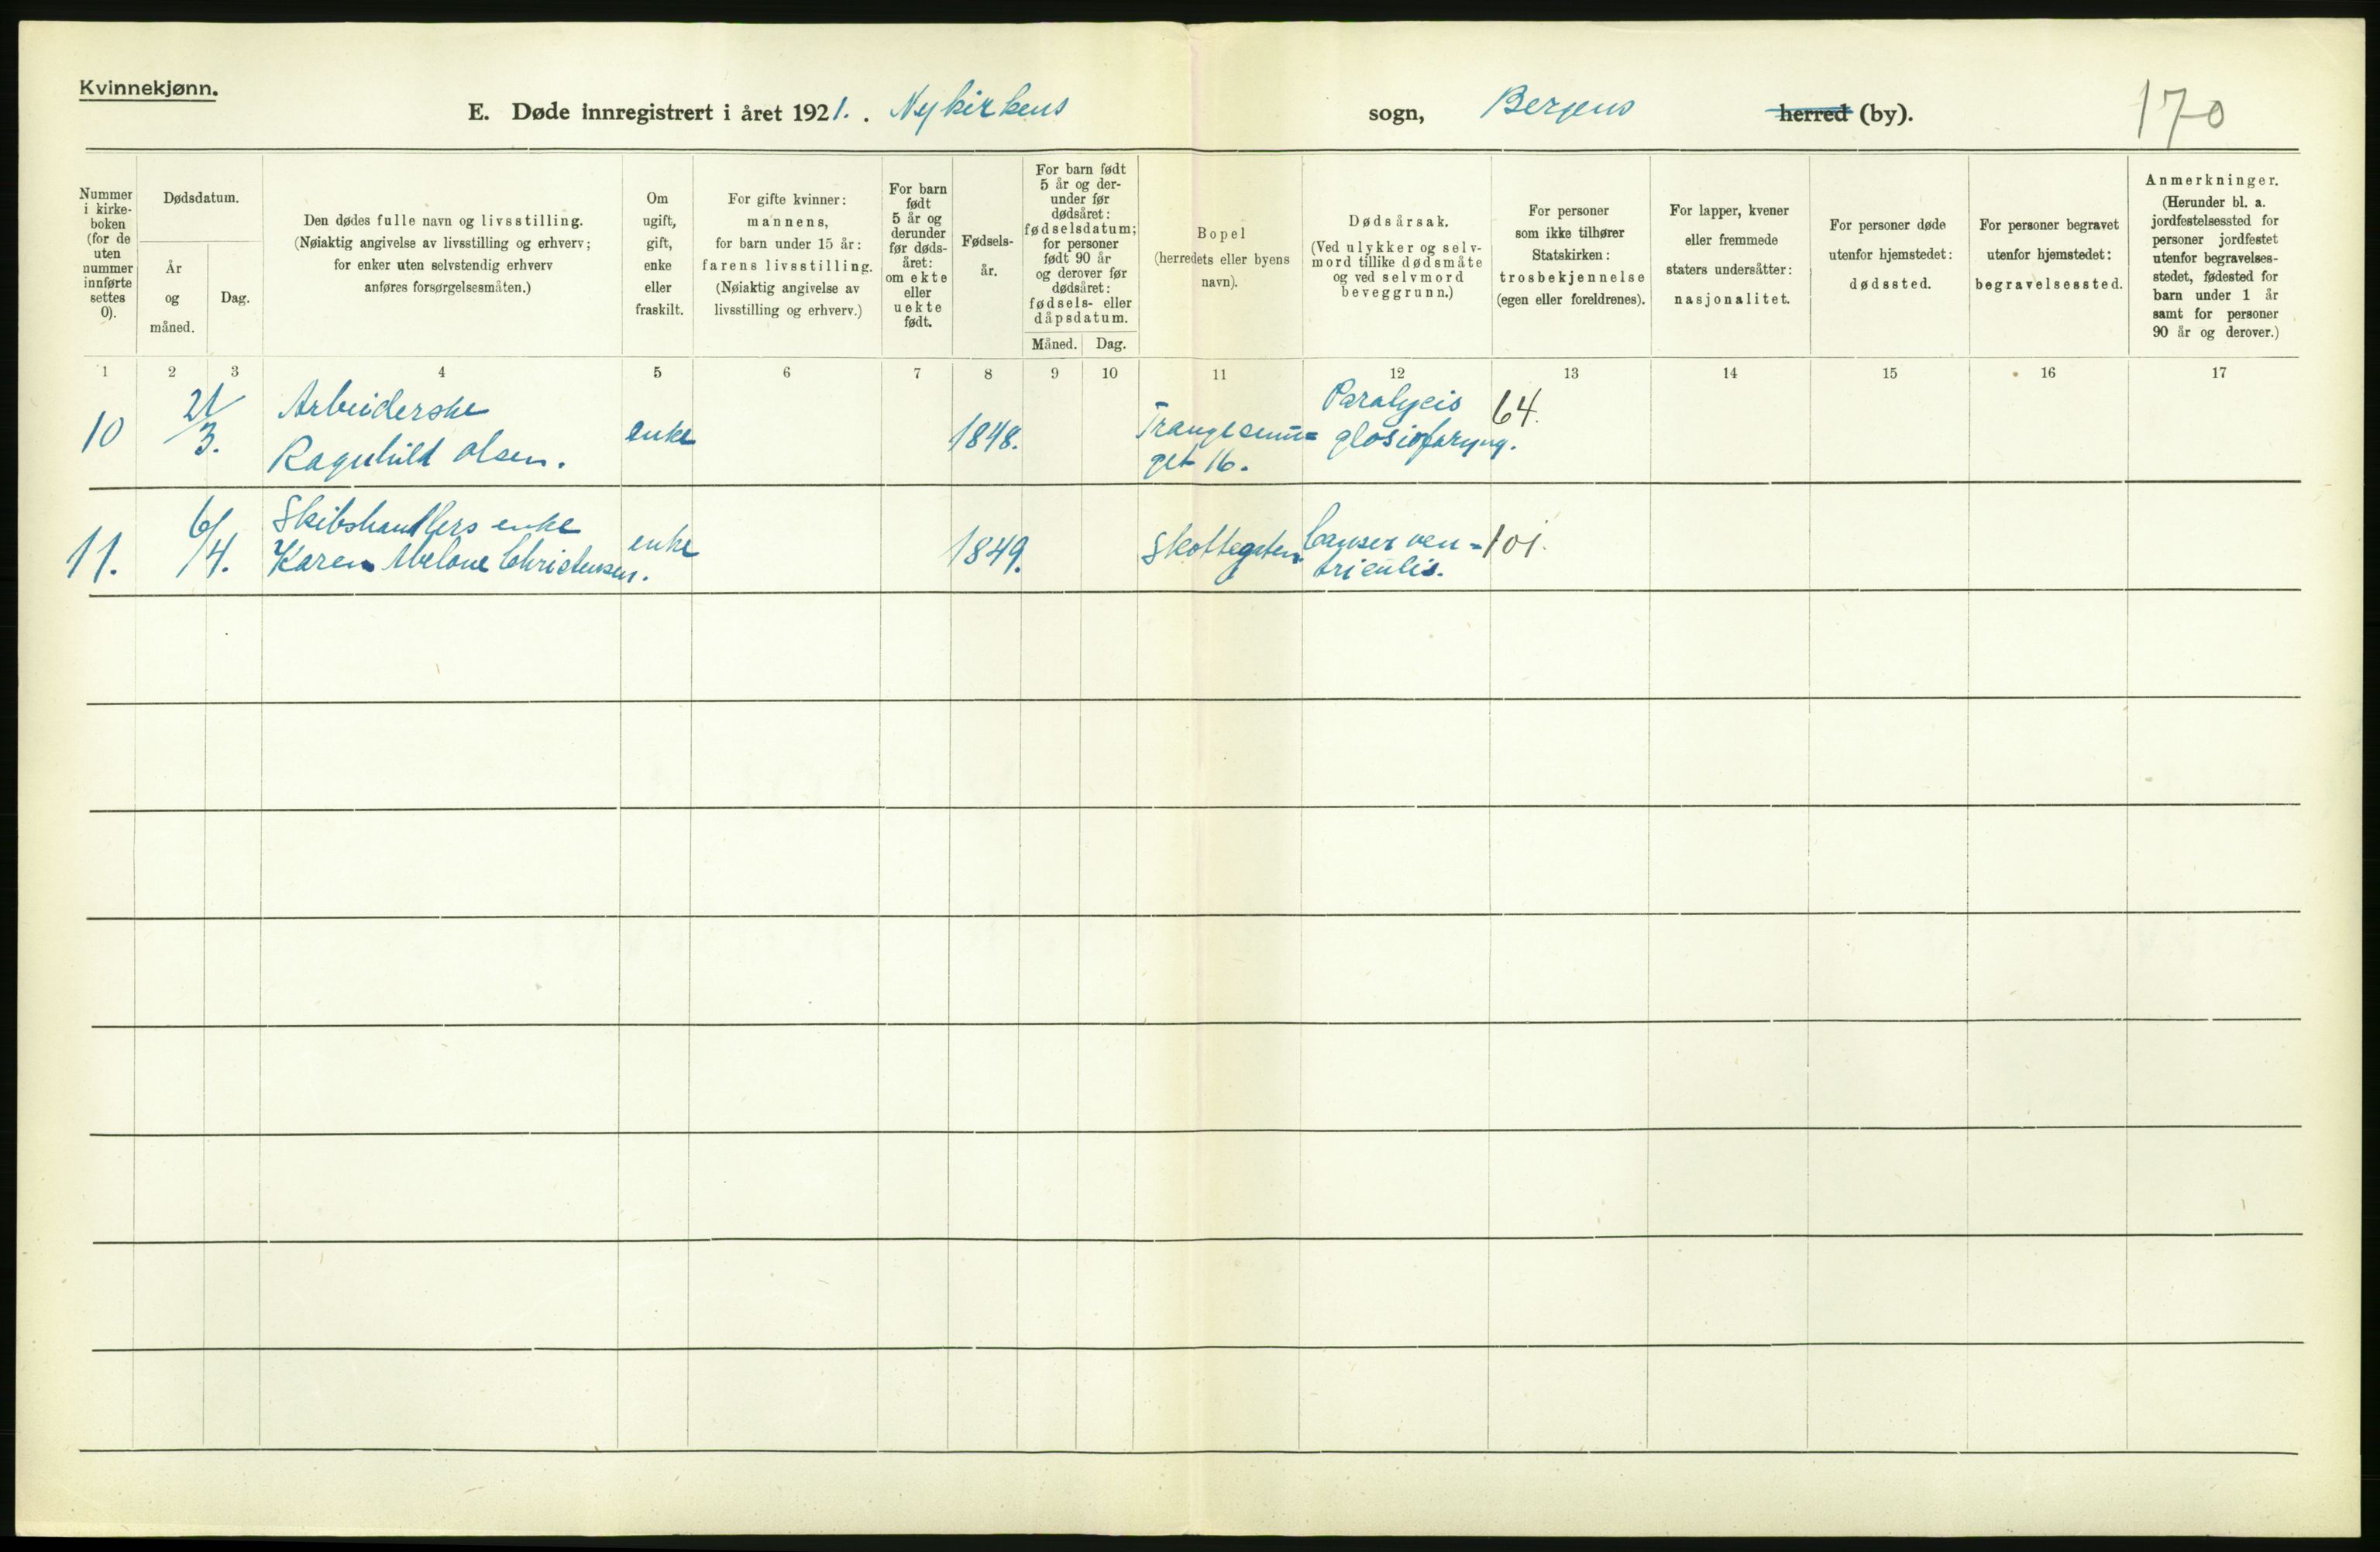 Kvinnekjønn.
E. Døde innregistrert i året 1921. . Nykirkens sogn, Bergens herred (by). 170
Nummer i kirkeboken (for de uten nummer innførte settes 0).
Dødsdatum.
År og måned.
Dag.
Den dødes fulle navn og livsstilling.
(Nøiaktig angivelse av livsstilling og erhverv;
for enker uten selvstendig erhverv
anføres forsørgelsesmåten.)
Om
ugift,
gift,
enke
eller
fraskilt.
For gifte kvinner:
mannens,
for barn under 15 år:
farens livsstilling.
(Nøiaktig angivelse av
livsstilling og erhverv.)
For barn
født
5 år og
derunder
før døds-
året:
om ekte
eller
uekte
født.
Fødsels-
år.
For barn født
5 år og der-
under før
dødsåret:
fødselsdatum;
for personer
født 90 år
og derover før
dødsåret:
fødsels- eller
dåpsdatum.
Måned. Dag.
Bopel
(herredets eller byens
navn).
Dødsårsak.
(Ved ulykker og selv-
mord tillike dødsmåte
og ved selvmord
beveggrunn.)
For personer
som ikke tilhører
Statskirken:
trosbekjennelse
(egen eller foreldrenes).
For lapper, kvener
eller fremmede
staters undersåtter:
nasjonalitet.
For personer døde
utenfor hjemstedet:
dødssted.
For personer begravet
utenfor hjemstedet:
begravelsessted.
Anmerkninger.
(Herunder bl. a.
jordfestelsessted for
personer jordfestet
utenfor begravelses-
stedet, fødested for
barn under 1 år
samt for personer
90 år og derover.)
1 2 3 4 5 6 7 8 9 10 11 12 13 14 15 16 17
10
21/
3.
Arbeiderske
Ragnhild Olsen.
enke
1848.
get 16.
Paralysis
64.
11.
6/
4.
Skibshandlers enke
Karen Christensen.
enke
1849.
Skottegaten
Canser ven=
triculis.
101.